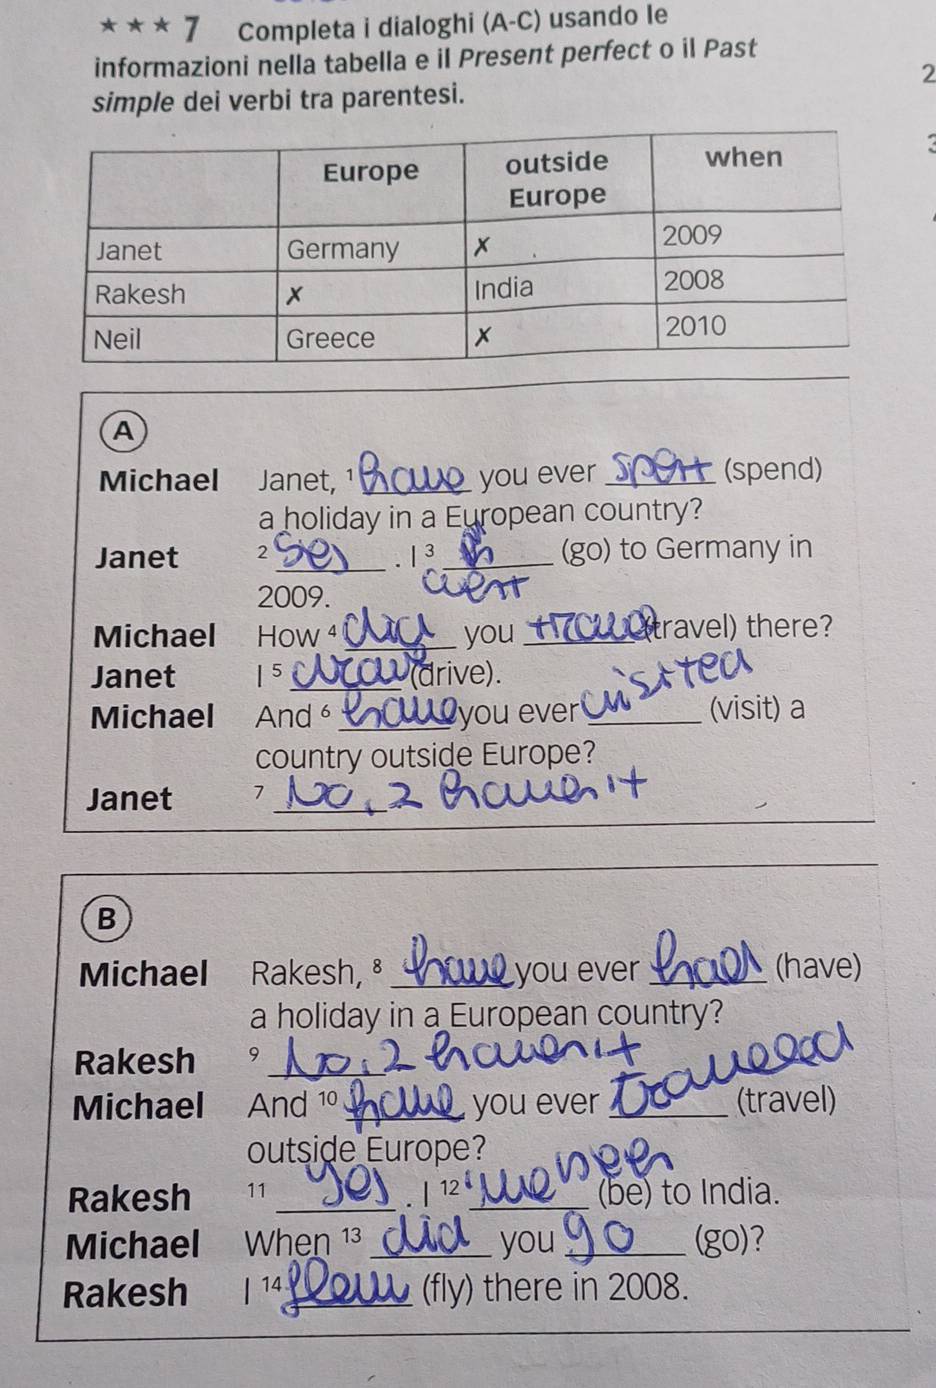 ★ ★ ★ 7 Completa i dialoghi (A-C) usando le
informazioni nella tabella e il Present perfect o il Past
simple dei verbi tra parentesi.
2
Europe outside Europe when
Janet Germany x 2009
Rakesh x India 2008
Neil Greece x 2010
A
Michael Janet, 1 have you ever spent (spend)
a holiday in a European country?
Janet 2 yes. I 3 went (go) to Germany in
2009.
Michael How 4 did you travel (travel) there?
Janet I 5 drove (drive).
Michael And 6 have you ever visited (visit) a
country outside Europe?
Janet 7 No, I haven't
B
Michael Rakesh, 8 have you ever had (have)
a holiday in a European country?
Rakesh 9 No, I haven't
Michael And 10 have you ever traveled (travel)
outside Europe?
Rakesh 11 yes. I 12 've been (be) to India.
Michael When 13 did you go (go)?
Rakesh I 14 flew (fly) there in 2008.